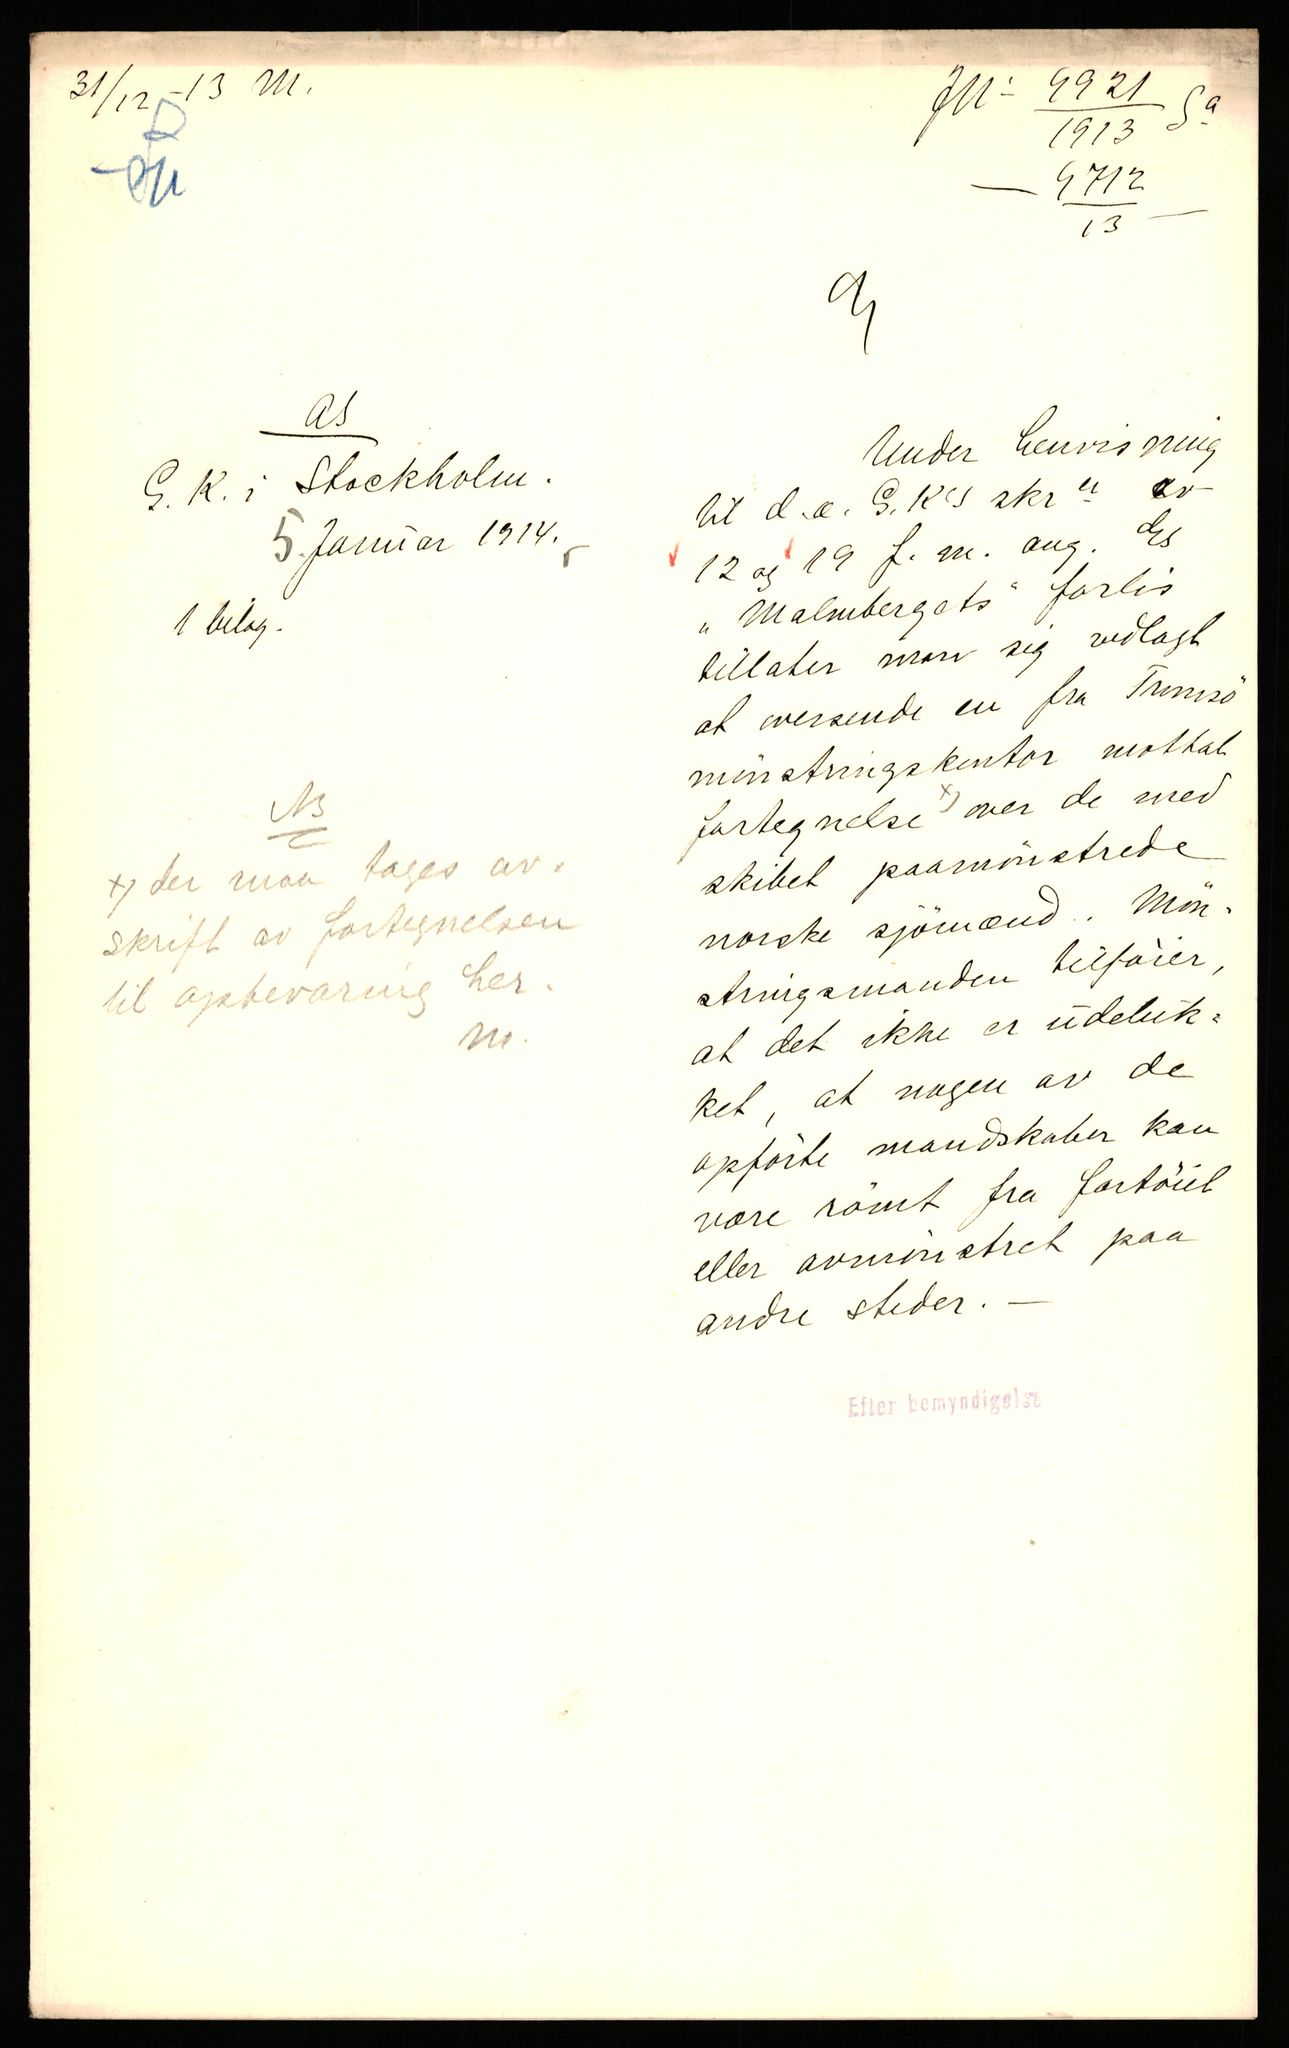 31/12 -13 M.
JN: 9921
1913 Sa
— 9712
13 —
as
G. K. i Stockholm.
5. Januar 1914.
1 bilag.
NB
x) der maa tages av=
skrift av fortegnelsen
til opbevaring her.
M.
Under henvisning
til d. æ. G.K's skr. av
12 og 19 f. m. ang. ds
"Malmbergets" forlis
tillater man sig vedlagt
at oversende en fra Tromsö
mönstringskontor mottat
fortegnelse x) over de med
skibet paamönstrede
norske sjömænd. Mön=
stringsmanden tilföier,
at det ikke er udeluk=
ket, at nogen av de
opförte mandskaber kan
være römt fra fartöiet
eller avmönstret paa
andre steder. —
Efter bemyndigelse